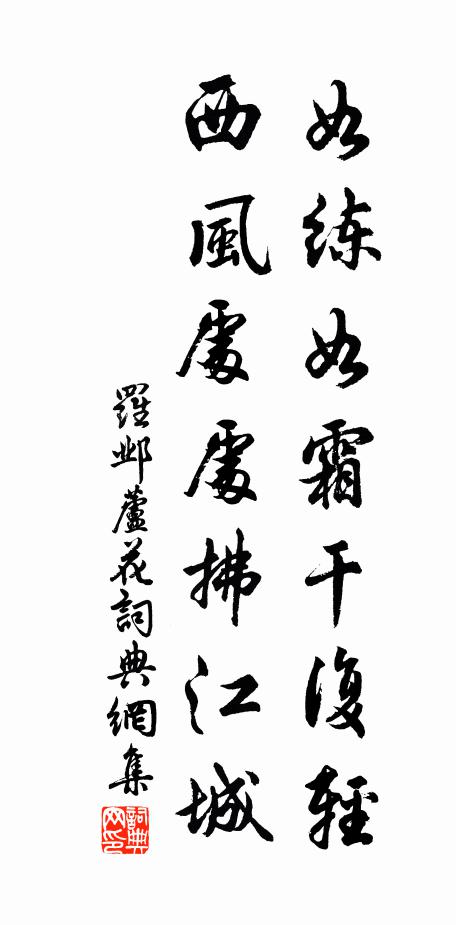 如练如霜干復輕
西風處處拂江城
羅邺蘆花詞典網集
詞典网印